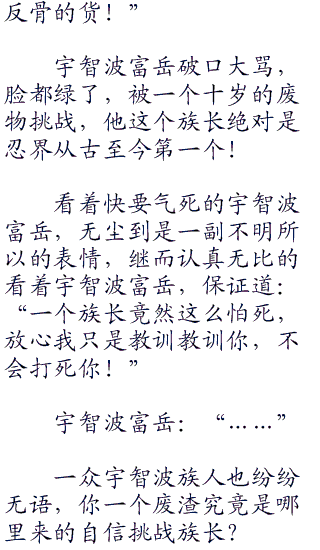 反骨的货！”
宇智波富岳破口大骂，
脸都绿了，被一个十岁的废
物挑战，他这个族长绝对是
忍界从古至今第一个！
看着快要气死的宇智波
富岳，无尘到是一副不明所
以的表情，继而认真无比的
看着宇智波富岳，保证道：
“一个族长竟然这么怕死，
放心我只是教训教训你，不
会打死你！”
宇智波富岳：“……”
一众宇智波族人也纷纷
无语，你一个废渣究竟是哪
里来的自信挑战族长？